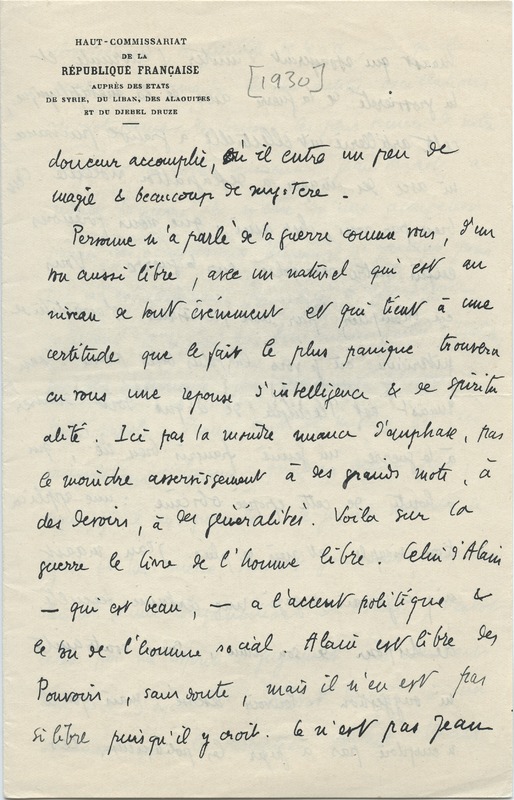 HAUT-COMMISSARIAT
DE LA
RÉPUBLIQUE FRANÇAISE
AUPRÈS DES ETATS
DE SYRIE, DU LIBAN, DES ALAOUITES
ET DU DJEBEL DRUZE
[1930]
douceur accomplie, où il entre un peu de
magie & beaucoup de mystère.
Personne n'a parlé de la guerre comme vous, d'un
ton aussi libre, avec un naturel qui est au
niveau de tout événement et qui tient à une
certitude que le fait le plus panique trouvera
en vous une reponse d'intelligence & de spiritu
alité. Ici pas la moindre nuance d'emphase, pas
le moindre asservissement à des grands mots, à
des devoirs, à des généralités. Voila sur la
guerre le livre de l'homme libre. Celui d'Alain
— qui est beau, — a l'accent politique &
le ton de l'homme social. Alain est libre des
Pouvoirs, sans doute, mais il n'en est pas
si libre puisqu'il y croit. Ce n'est pas Jean